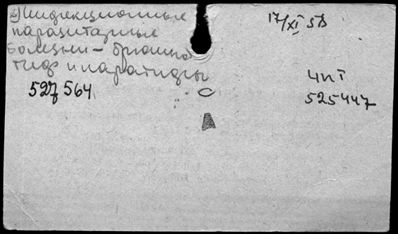 2) Инфекционные
паразитарные
болезни - брюшной
тиф и паратифы
527564
17/XI 58
4п1
525447